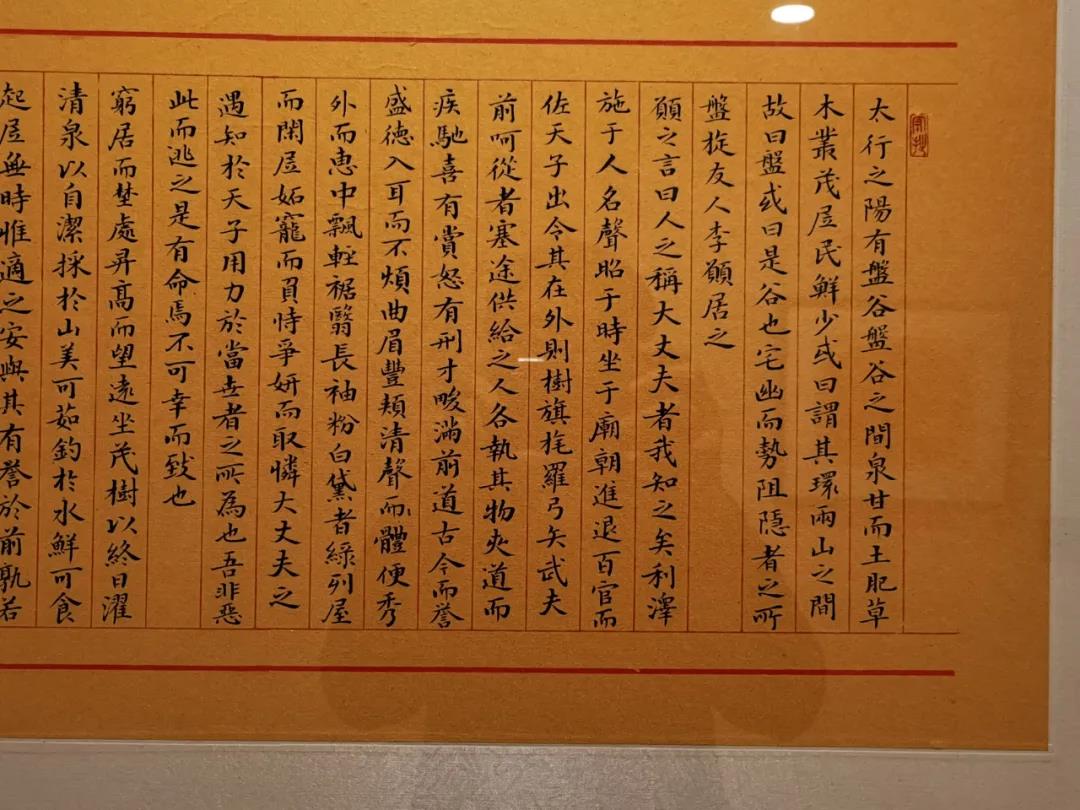 太行之陽有盤谷盤谷之間泉甘而土肥草
木叢茂居民鮮少或曰謂其環兩山之間
故曰盤或曰是谷也宅幽而勢阻隱者之所
盤旋友人李願居之
願之言曰人之稱大丈夫者我知之矣利澤
施于人名聲昭于時坐于廟朝進退百官而
佐天子出令其在外則樹旗旄羅弓矢武夫
前呵從者塞途供給之人各執其物夾道而
疾馳喜有賞怒有刑才畯滿前道古今而譽
盛德入耳而不煩曲眉豐頰清聲而體便秀
外而惠中飄輕裾翳長袖粉白黛者綠列屋
而閑居妬寵而負恃爭妍而取憐大丈夫之
遇知於天子用力於當世者之所為也吾非惡
此而逃之是有命焉不可幸而致也
窮居而埜處昇高而望遠坐茂樹以終日濯
清泉以自潔採於山美可茹釣於水鮮可食
起居無時惟適之安與其有譽於前孰若